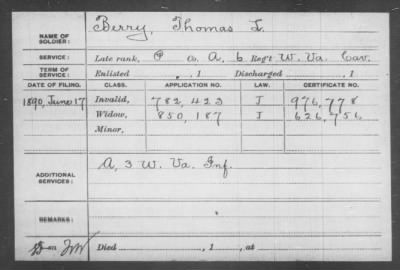 NAME OF SOLDIER: Berry, Thomas L.
SERVICE: Late rank, P Co. A, 6 Reg't W. Va. Cav.
TERM OF SERVICE: Enlisted , 1 Discharged , 1
DATE OF FILING. CLASS. APPLICATION NO. LAW. CERTIFICATE NO.
1890, June 17 Invalid, 782,423 J 976,778
Widow, 850,187 J 626,756
Minor,
ADDITIONAL SERVICES: A, 3 W. Va. Inf.
REMARKS:
Died , 1 , at